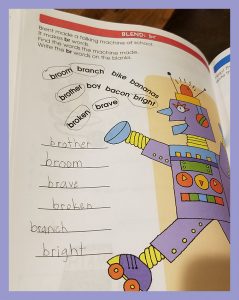 BLEND: br
Brent made a talking machine at school.
It makes br words.
Find the words the machine made.
Write the br words on the blanks.
broom branch bike bananas
brother boy bacon bright
broken brave
brother
broom
brave
broken
branch
bright